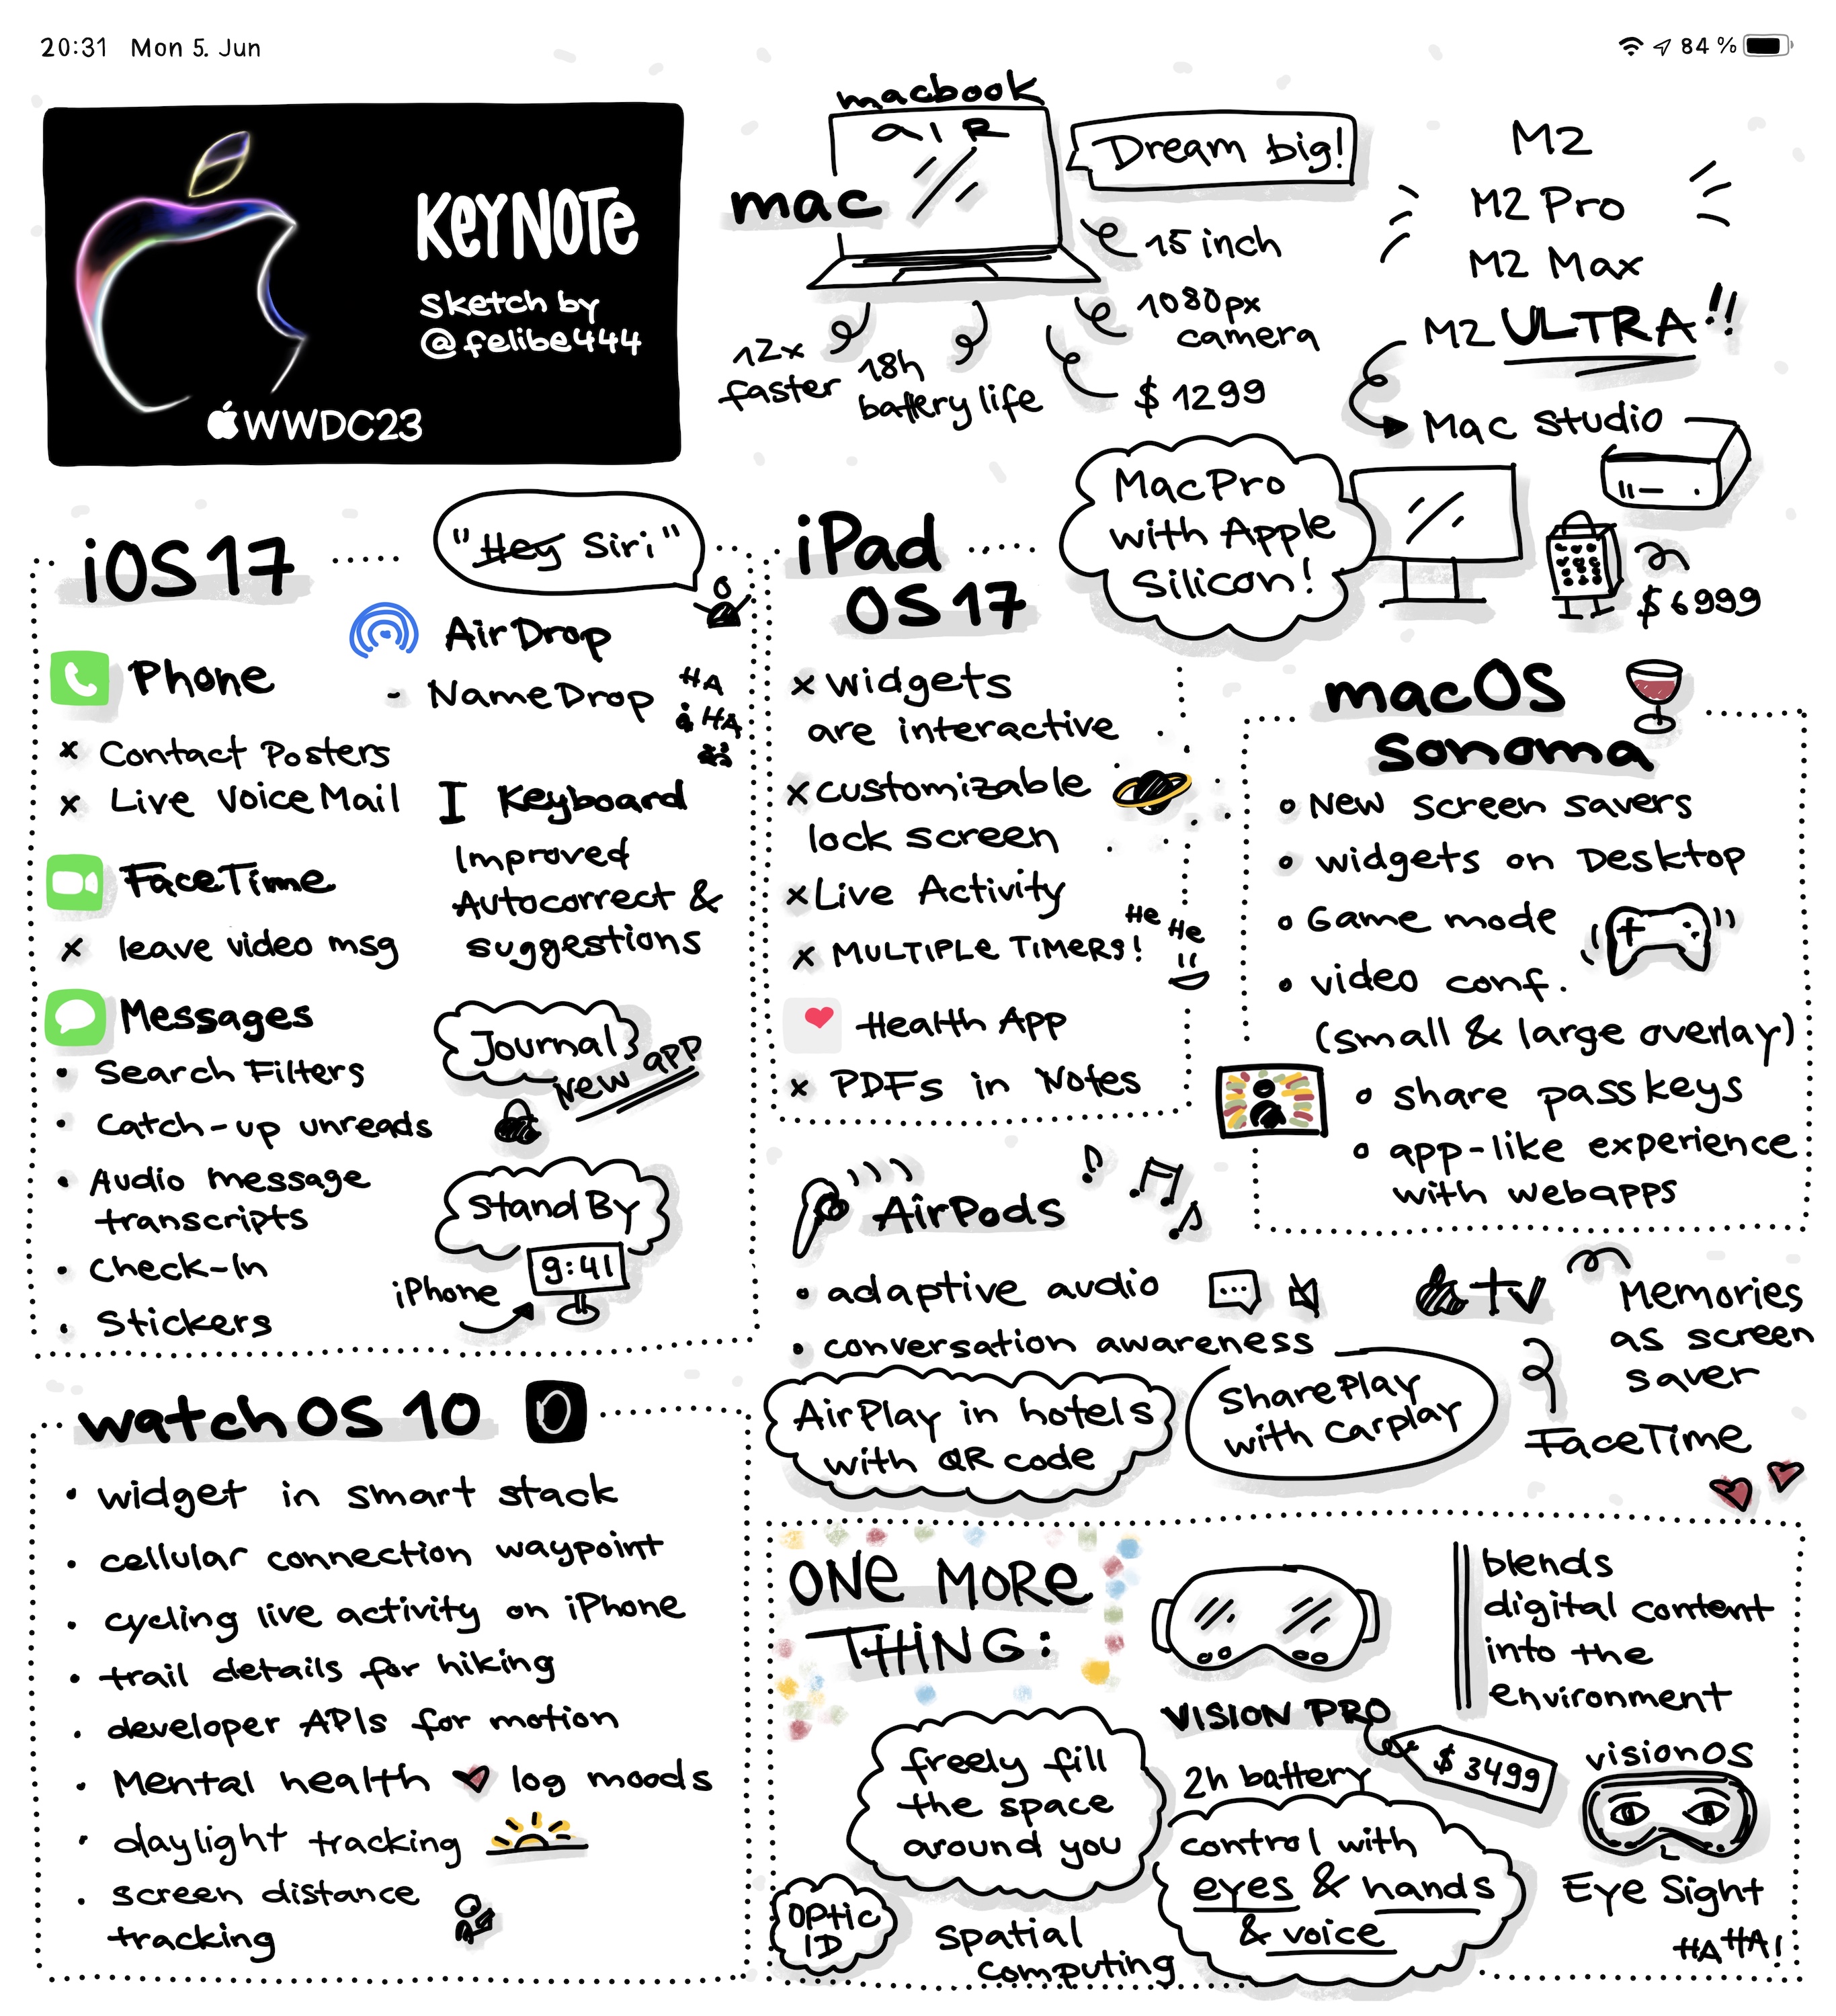 20:31 Mon 5. Jun
84 %
KEYNOTE
sketch by
@felibe444
WWDC23
macbook
aiR
mac
Dream big!
15 inch
1080px
camera
$ 1299
12x
faster
18h
battery life
M2
M2 Pro
M2 Max
M2 ULTRA!!
Mac Studio
Mac Pro
with Apple
Silicon!
$ 6999
iOS 17
"Hey Siri"
AirDrop
- NameDrop
HA
HA
Phone
x Contact Posters
x Live VoiceMail
FaceTime
x leave video msg
Messages
• Search Filters
• Catch-up unreads
• Audio message
transcripts
• Check-In
• Stickers
I Keyboard
Improved
Autocorrect &
suggestions
Journal
New app
StandBy
iPhone
9:41
iPad
OS 17
x widgets
are interactive
x customizable
lock screen
x Live Activity
x MULTIPLE TIMERS!
He
He
Health App
x PDFs in Notes
macOS
Sonoma
• New screen savers
• widgets on Desktop
• Game mode
• video conf.
(small & large overlay)
• share passkeys
• app-like experience
with webapps
AirPods
• adaptive audio
• conversation awareness
AirPlay in hotels
with QR code
SharePlay
with Carplay
tv
Memories
as screen
saver
FaceTime
watchOS 10
• widget in smart stack
• cellular connection waypoint
• cycling live activity on iPhone
• trail details for hiking
• developer APIs for motion
• Mental health log moods
• daylight tracking
• screen distance
tracking
ONE MORE
THING:
VISION PRO
$ 3499
2h battery
blends
digital content
into the
environment
freely fill
the space
around you
control with
eyes & hands
& voice
visionOS
Eye Sight
HA HA!
OPTIC
ID
Spatial
Computing